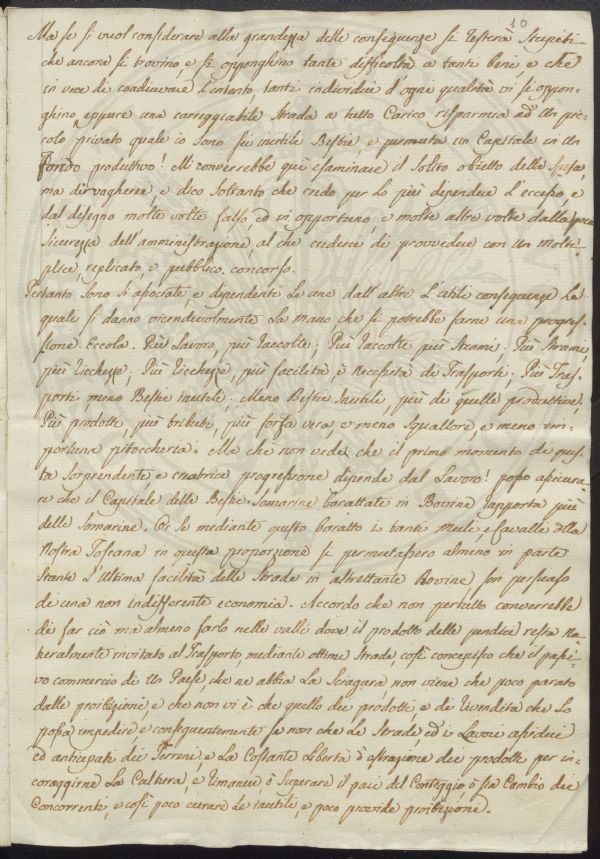 10
Ma se si vuol considerare alla grandezza delle conseguenze si resterà stupiti
che ancora si trovino, e si opponghino tante difficoltà a tanto bene e che
in vece di coadiuvare l'intento tanti individui d'ogni qualità vi si oppon-
ghino, eppure una carreggiabile strada a tutto Carico risparmia ad un pic-
colo privato quale io sono sei inutili Bestie e permuta un Capitale in un
Fondo produttivo! Mi converrebbe quì esaminare il solito obietto della spesa,
ma divagherei, e dico soltanto che credo per lo più dependere L'eccesso, e
dal disegno molte volte falso, ed inopportuno, e molte altre volte dalla poca
sicurezza dell'amministrazione, al che crederei di provvedere con un molti-
plice, replicato, e pubblico concorso.
Pertanto sono sì associate, e dipendenti Le une dall'altre L'utili conseguenze Le
quali si danno vicendevolmente La mano che si potrebbe farne una progres-
sione. Eccola. Più Lavoro, più raccolte; Più raccolte più strami; Più strami,
più ricchezze; Più ricchezze, più facilità, e necessità di Trasporti; Più Tras-
porti, meno Bestie inutili; Meno Bestie inutili, più di quelle produttive;
Più prodotti, più tributi, più forza vera, e meno squallore, e meno im-
portuna pitoccheria. Ma chi non vede, che il primo momento di ques-
ta sorprendente e creatrice progressione dipende dal Lavoro! posso assicura-
re che il Capitale delle Bestie Somarine barattate in Bovine rapporta più
delle Somarine. E se mediante questo baratto i tanti Muli, e Cavalle della
Nostra Toscana in questa proporzione si permutassero almeno in parte
stante L'ultima facilità delle strade in altrettante Bovine, son persuaso
di una non indifferente economia. Accordo che non pertutto converrebbe
di far ciò ma almeno farlo nelle valli dove il prodotto delle pendici resta na-
turalmente invitato al Trasporto, mediante ottime strade, così concepisco che il passi-
vo commercio di un Paese, che ne abbia La sciagura, non viene che poco parato
dalle proibizioni, e che non vi è che quello dei prodotti, e di rivendita che Lo
possa impedire e conseguentemente se non che Le strade, ed i Lavori assidui
ed anticipati dei Terreni, e La Costante Libertà d'estrazione dei prodotti per in-
coraggirne La Cultura, e rimane, o superare il pari del Conteggio, o sia Cambio dei
Concorrenti, e così poco curare Le inutili, e poco provide proibizioni.